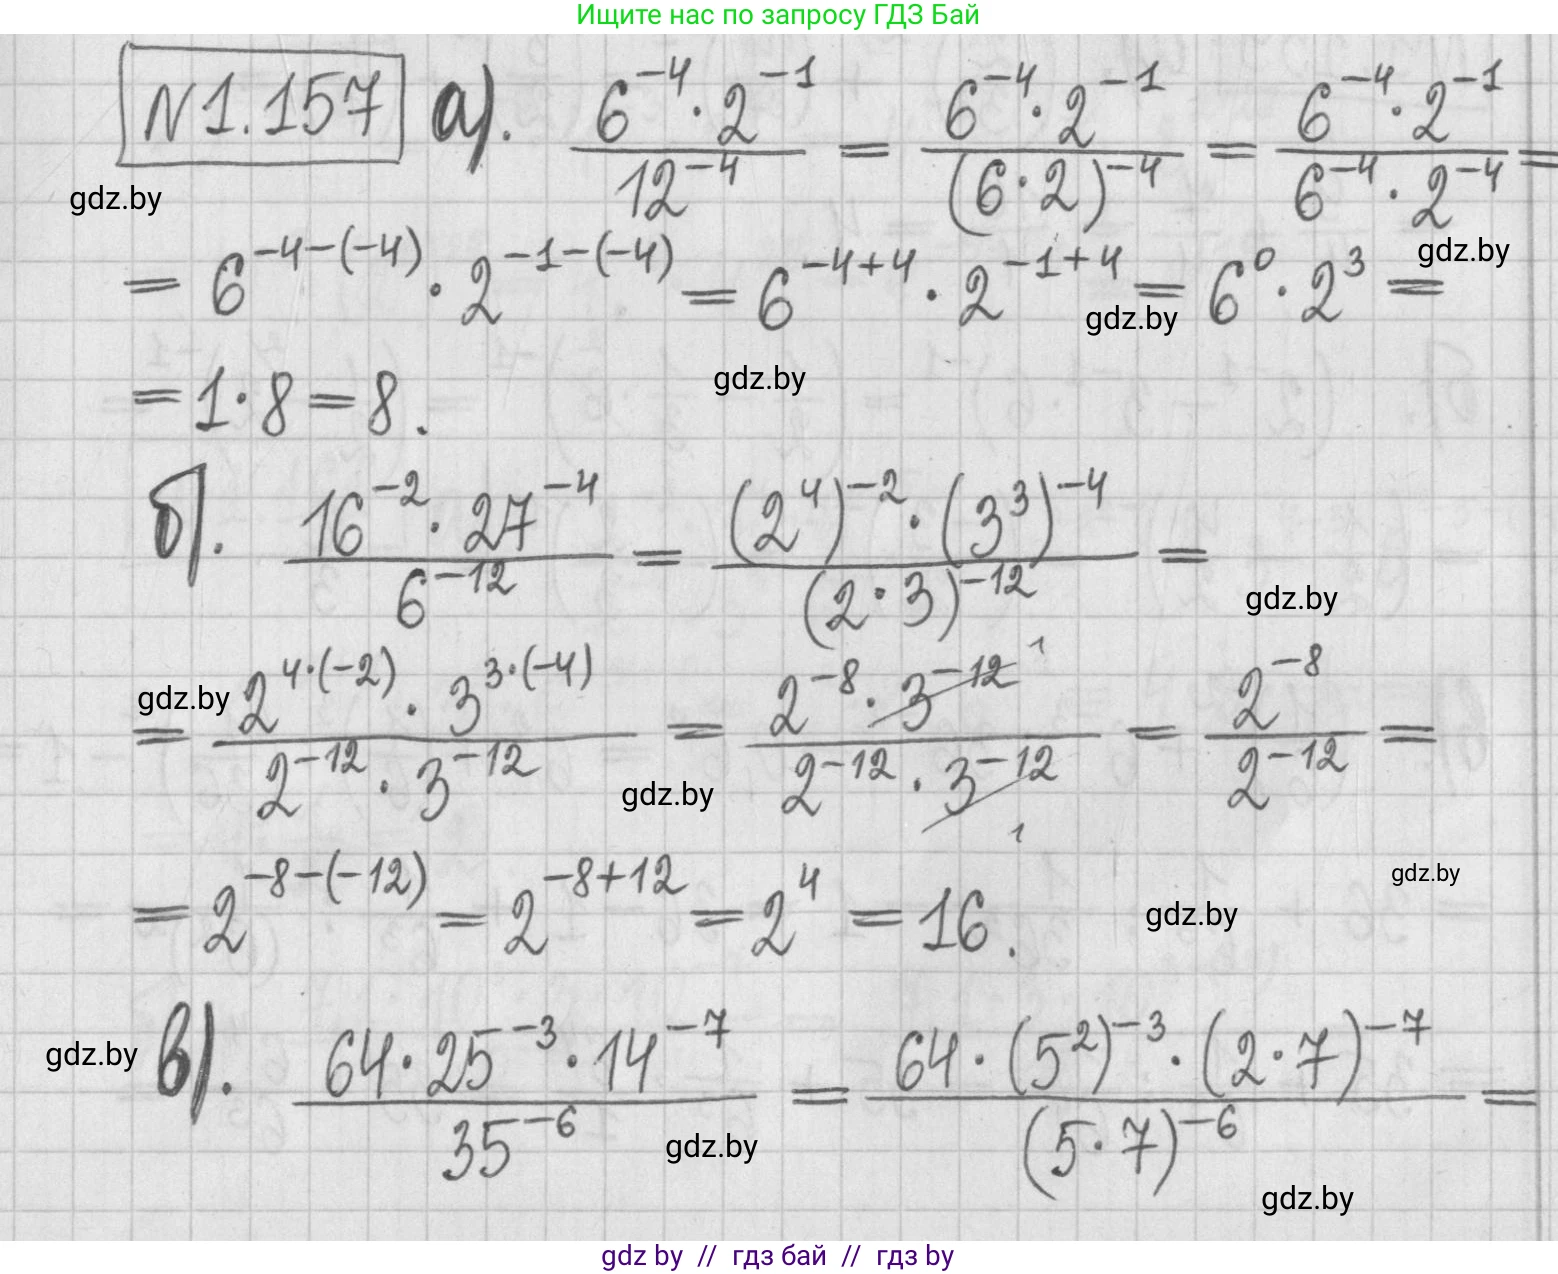 Ищите нас по запросу ГДЗ Бай
N 1.157 а). \frac{6^{-4} \cdot 2^{-1}}{12^{-4}} = \frac{6^{-4} \cdot 2^{-1}}{(6 \cdot 2)^{-4}} = \frac{6^{-4} \cdot 2^{-1}}{6^{-4} \cdot 2^{-4}} =
gdz.by
gdz.by
= 6^{-4-(-4)} \cdot 2^{-1-(-4)} = 6^{-4+4} \cdot 2^{-1+4} = 6^0 \cdot 2^3 =
gdz.by
gdz.by
= 1 \cdot 8 = 8.
б). \frac{16^{-2} \cdot 27^{-4}}{6^{-12}} = \frac{(2^4)^{-2} \cdot (3^3)^{-4}}{(2 \cdot 3)^{-12}} =
gdz.by
gdz.by
= \frac{2^{4 \cdot (-2)} \cdot 3^{3 \cdot (-4)}}{2^{-12} \cdot 3^{-12}} = \frac{2^{-8} \cdot 3^{-12} 1}{2^{-12} \cdot 3^{-12} 1} = \frac{2^{-8}}{2^{-12}} =
gdz.by
gdz.by
= 2^{-8-(-12)} = 2^{-8+12} = 2^4 = 16.
gdz.by
gdz.by
в). \frac{64 \cdot 25^{-3} \cdot 14^{-7}}{35^{-6}} = \frac{64 \cdot (5^2)^{-3} \cdot (2 \cdot 7)^{-7}}{(5 \cdot 7)^{-6}} =
gdz.by
gdz.by
gdz by // гдз бай // гдз by